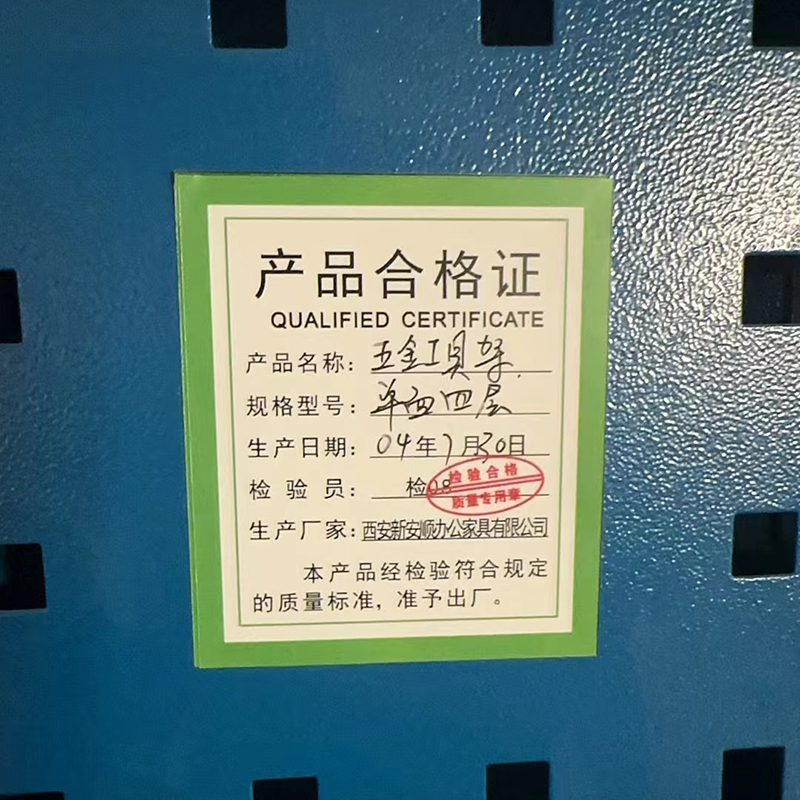 产品合格证
QUALIFIED CERTIFICATE
产品名称：五金工具架
规格型号：单面四层
生产日期：04年7月30日
检验员：检08
检验合格
质量专用章
生产厂家：西安新安顺办公家具有限公司
本产品经检验符合规定
的质量标准，准予出厂。